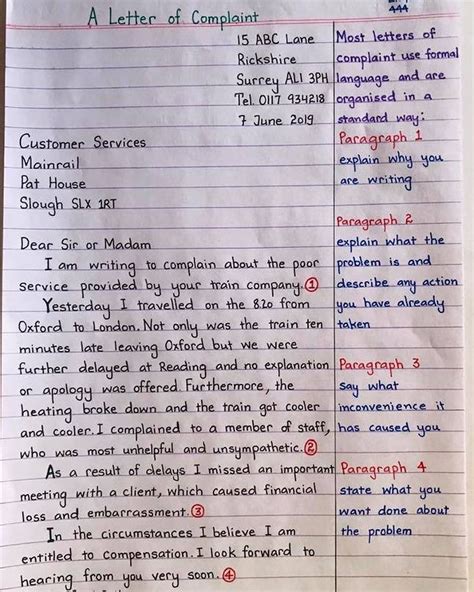 A Letter of Complaint
444
15 ABC Lane
Rickshire
Surrey AL1 3PH
Tel. 0117 934218
7 June 2019
Customer Services
Mainrail
Pat House
Slough SLX 1RT
Dear Sir or Madam
I am writing to complain about the poor
service provided by your train company.①
Yesterday I travelled on the 8.20 from
Oxford to London. Not only was the train ten
minutes late leaving Oxford but we were
further delayed at Reading and no explanation
or apology was offered. Furthermore, the
heating broke down and the train got cooler
and cooler. I complained to a member of staff,
who was most unhelpful and unsympathetic.②
As a result of delays I missed an important
meeting with a client, which caused financial
loss and embarrassment.③
In the circumstances I believe I am
entitled to compensation. I look forward to
hearing from you very soon.④
Most letters of
complaint use formal
language and are
organised in a
standard way:
Paragraph 1
explain why you
are writing
Paragraph 2
explain what the
problem is and
describe any action
you have already
taken
Paragraph 3
say what
inconvenience it
has caused you
Paragraph 4
state what you
want done about
the problem